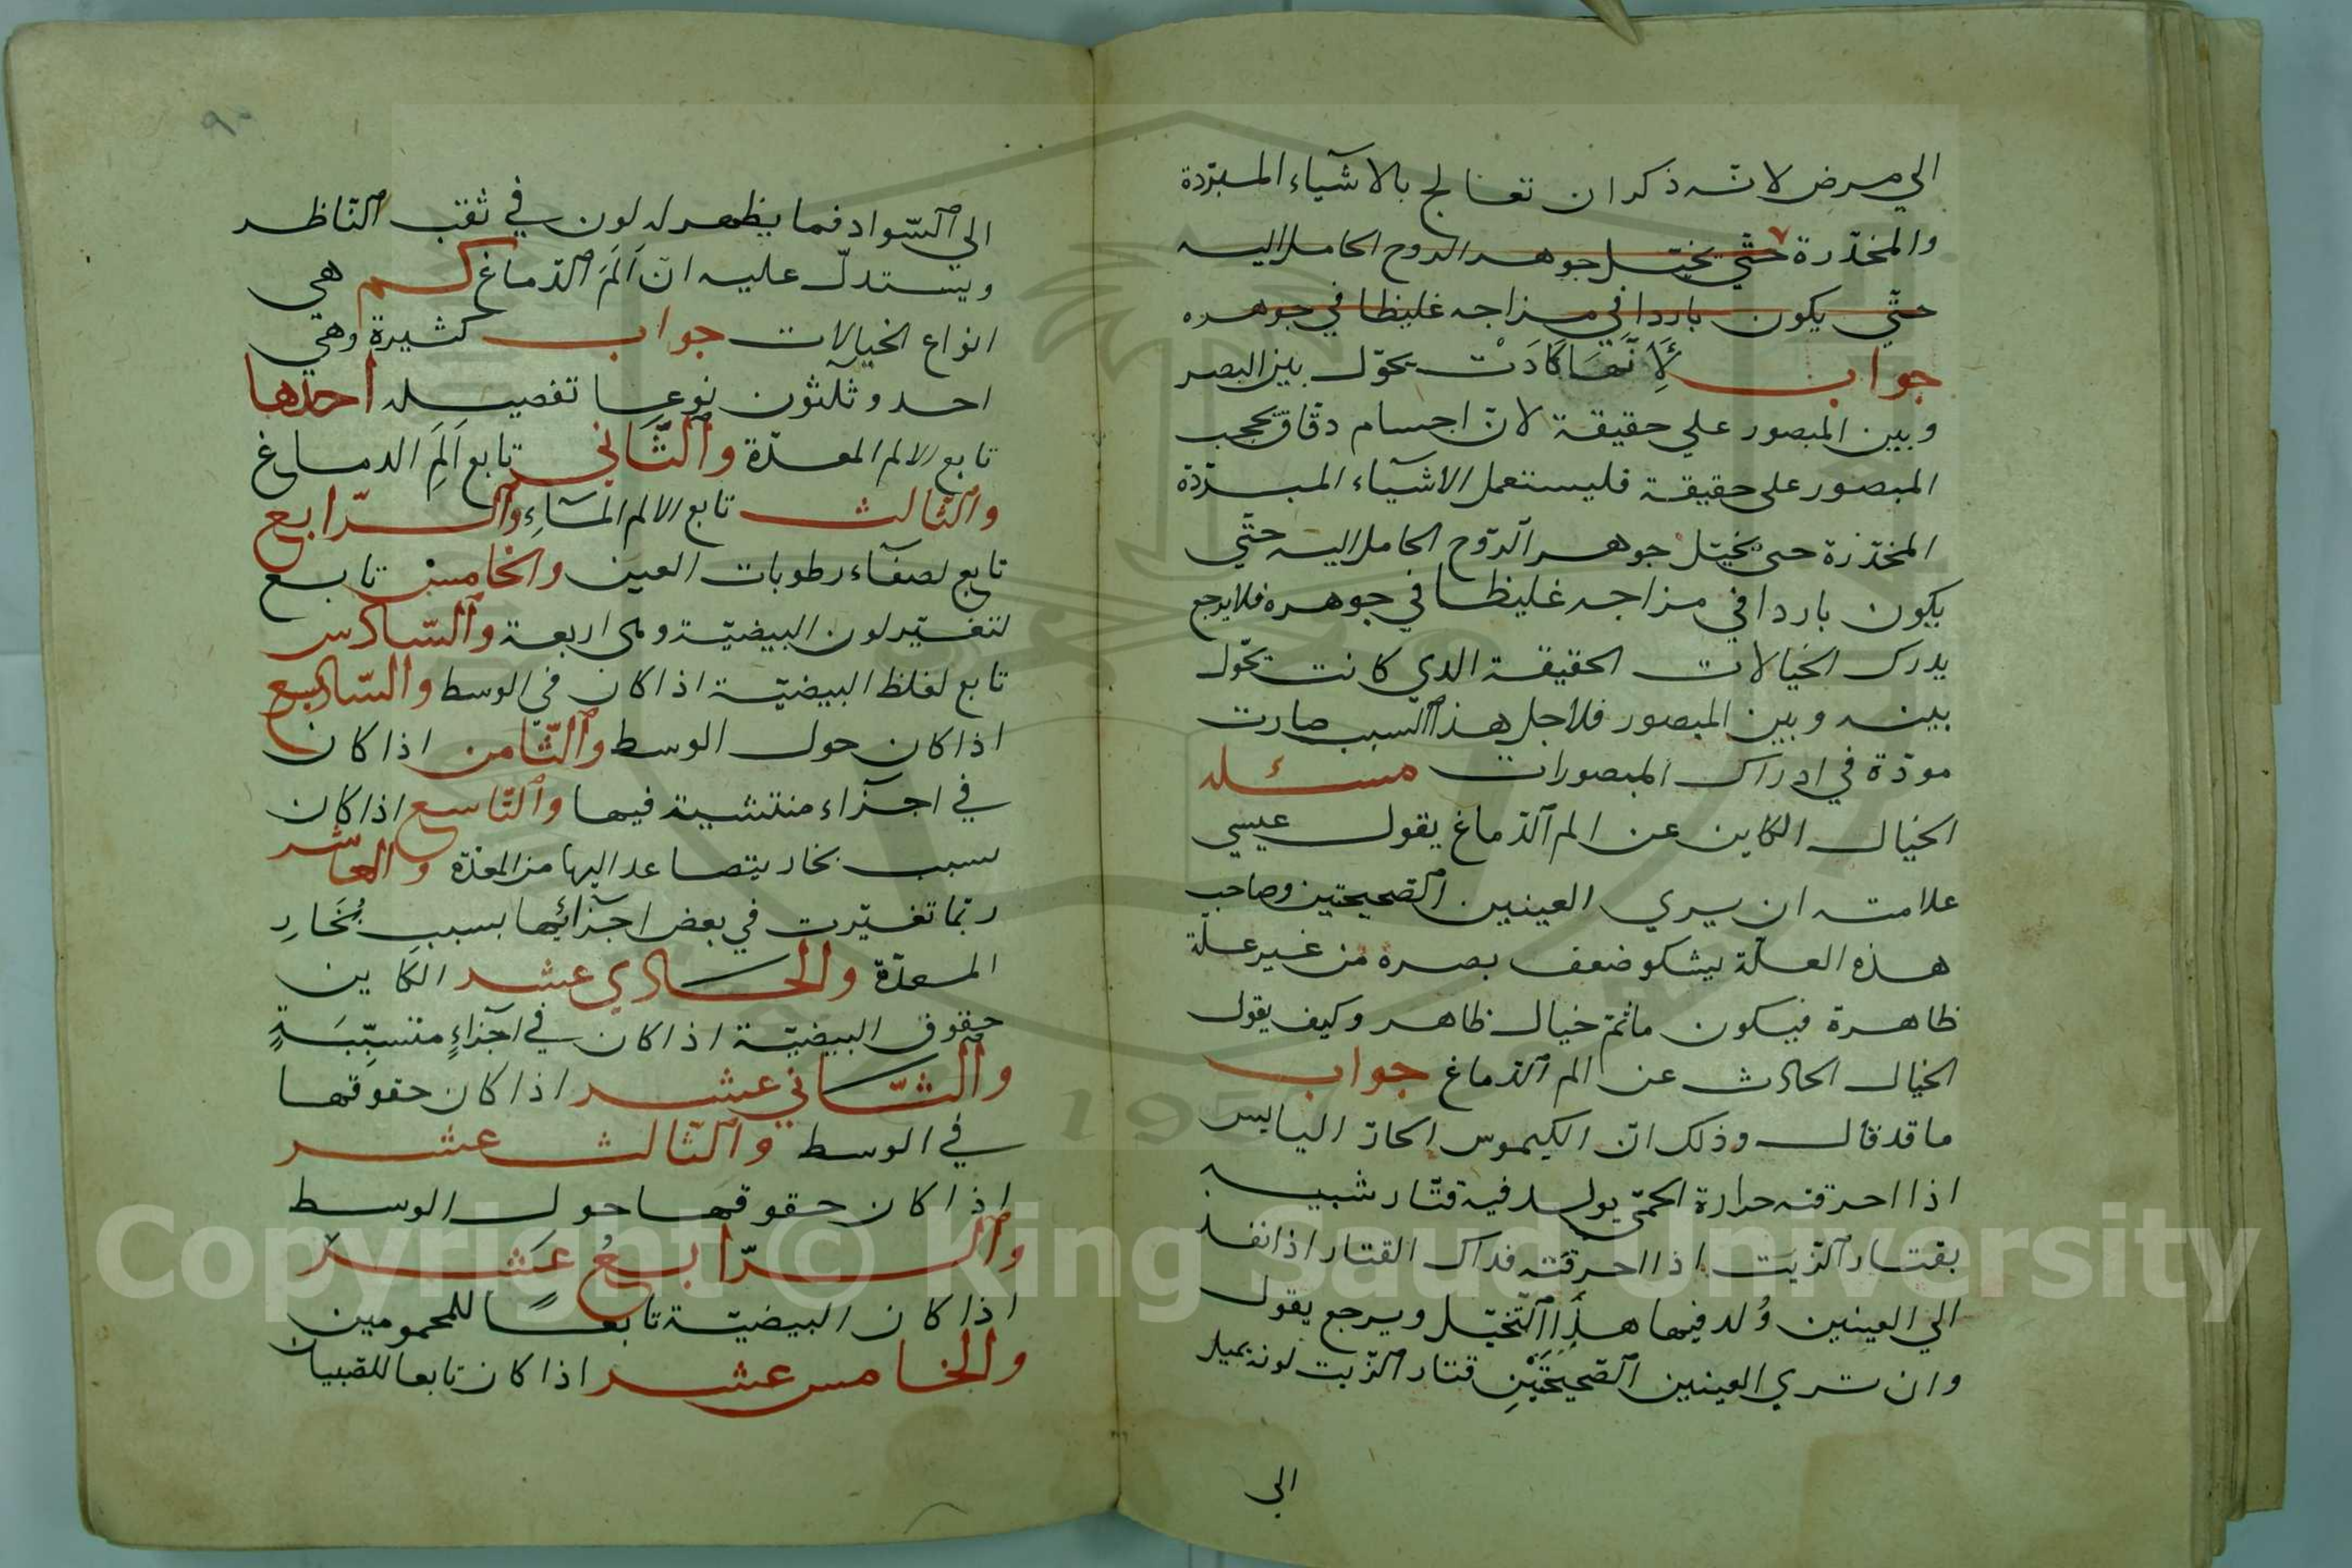 الي مرض لانه ذكر ان تعالج بالاشيآء المبرّدة
والمخدّرة حتّي يخيّل جوهر الروح الحامل اليه
حتّي يكون باردا في مزاجه غليظا في جوهره
جواب لَأِنَّهَا كَادَتْ يحوّل بين البصر
وبين المبصور علي حقيقة لانّ اجسام دقاق تحجب
المبصور علي حقيقة فليستعمل الاشيآء المبرّدة
المخدّرة حتى يخيّل جوهر الرّوح الحامل اليه حتّي
يكون باردا في مزاجه غليظا في جوهره فلا يرجع
يدرك الخيالات الحقيقة الدي كانت تحوّل
بينه وبين المبصور فلاجل هذا السبب صارت
مودّة في ادراك المبصورات مسئله
الخيال الكاين عن الم الدّماغ يقول عيسي
علامته ان يري العينين الصّحيحتين وصاحب
هذه العلّة يشكو ضعف بصره من غير علّة
ظاهرة فيكون ماثمّ خيال ظاهر وكيف يقول
الخيال الحادث عن الم الدّماغ جواب
ما قد قال وذلك انّ الكيموس الحادّ اليابس
اذا احرقته حرارة الحمّى يولد فيه قتار شبيه
بقتار الزّيت اذا احرقته فداك القتار اذا نفد
الي العينين وُلد فيها هذا التّخيّل ويرجع يقول
وان تري العينين الصّحيحَتَيْنِ قتار الزّيت لونه يميل
الي
٩٠
الي السّواد فما يظهر له لون في ثقب النّاظر
ويستدلّ عليه انّ اَلَمَ الدّماغ كم هي
انواع الخيالات جواب كثيرة وهي
احد وثلثون نوعا تفصيله احدها
تابع الالم المعدّة والثّاني تابع اَلَمِ الدماغ
والثالث تابع الالم المآءِ والرّابع
تابع لصفآء رطوبات العين والخامس تابع
لتغيّر لون البيضيّة وهى اربعة والسّادس
تابع لغلظ البيضيّة اذا كان في الوسط والسّابع
اذا كان حول الوسط والثّامن اذا كان
في اجزآء منتشية فيها والتّاسع اذا كان
بسبب بخار يتصاعد اليها من المعدّة والعاشر
ربّما تغيّرت في بعض اجزآئها بسبب بُخَارِ
المعدّة والحادي عشر الكاين
حقوق البيضيّة اذا كان في اجزآءٍ متسبِّبَةٍ
والثّاني عشر اذا كان حقوقها
في الوسط والثّالث عشر
اذا كان حقوقها حول الوسط
والرّابعُ عَشر
اذا كان البيضيّة تابعًا للمحمومين
والخامس عشر اذا كان تابعا للصّبيان
Copyright © King Saud University
195